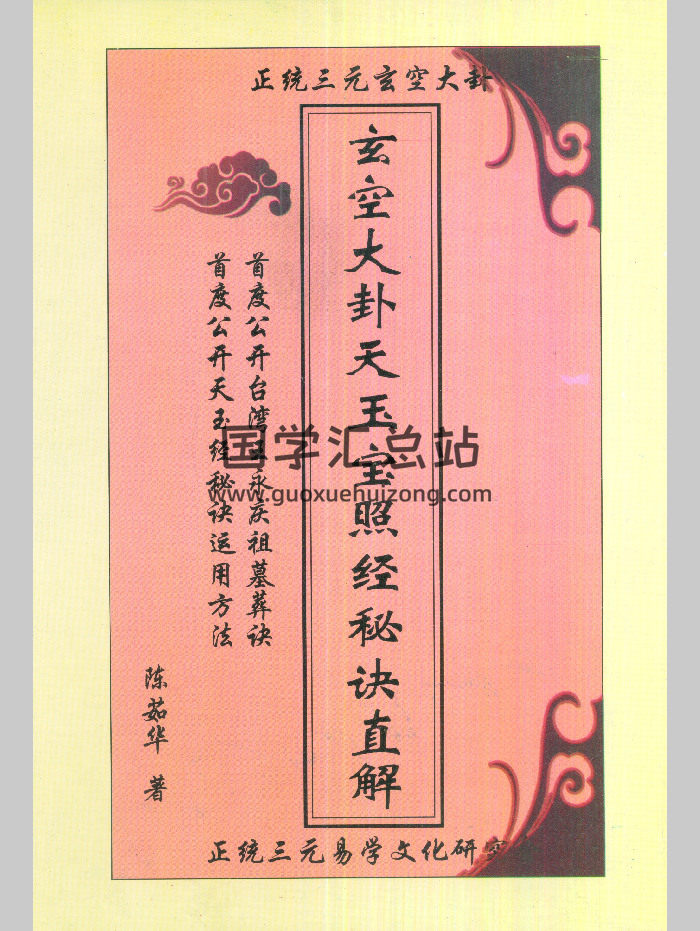 正统三元玄空大卦
玄空大卦天玉宝照经秘诀直解
首度公开台湾王永庆祖墓葬诀
首度公开天玉经秘诀运用方法
陈茹华 著
国学汇总站
www.guoxuehuizong.com
正统三元易学文化研究